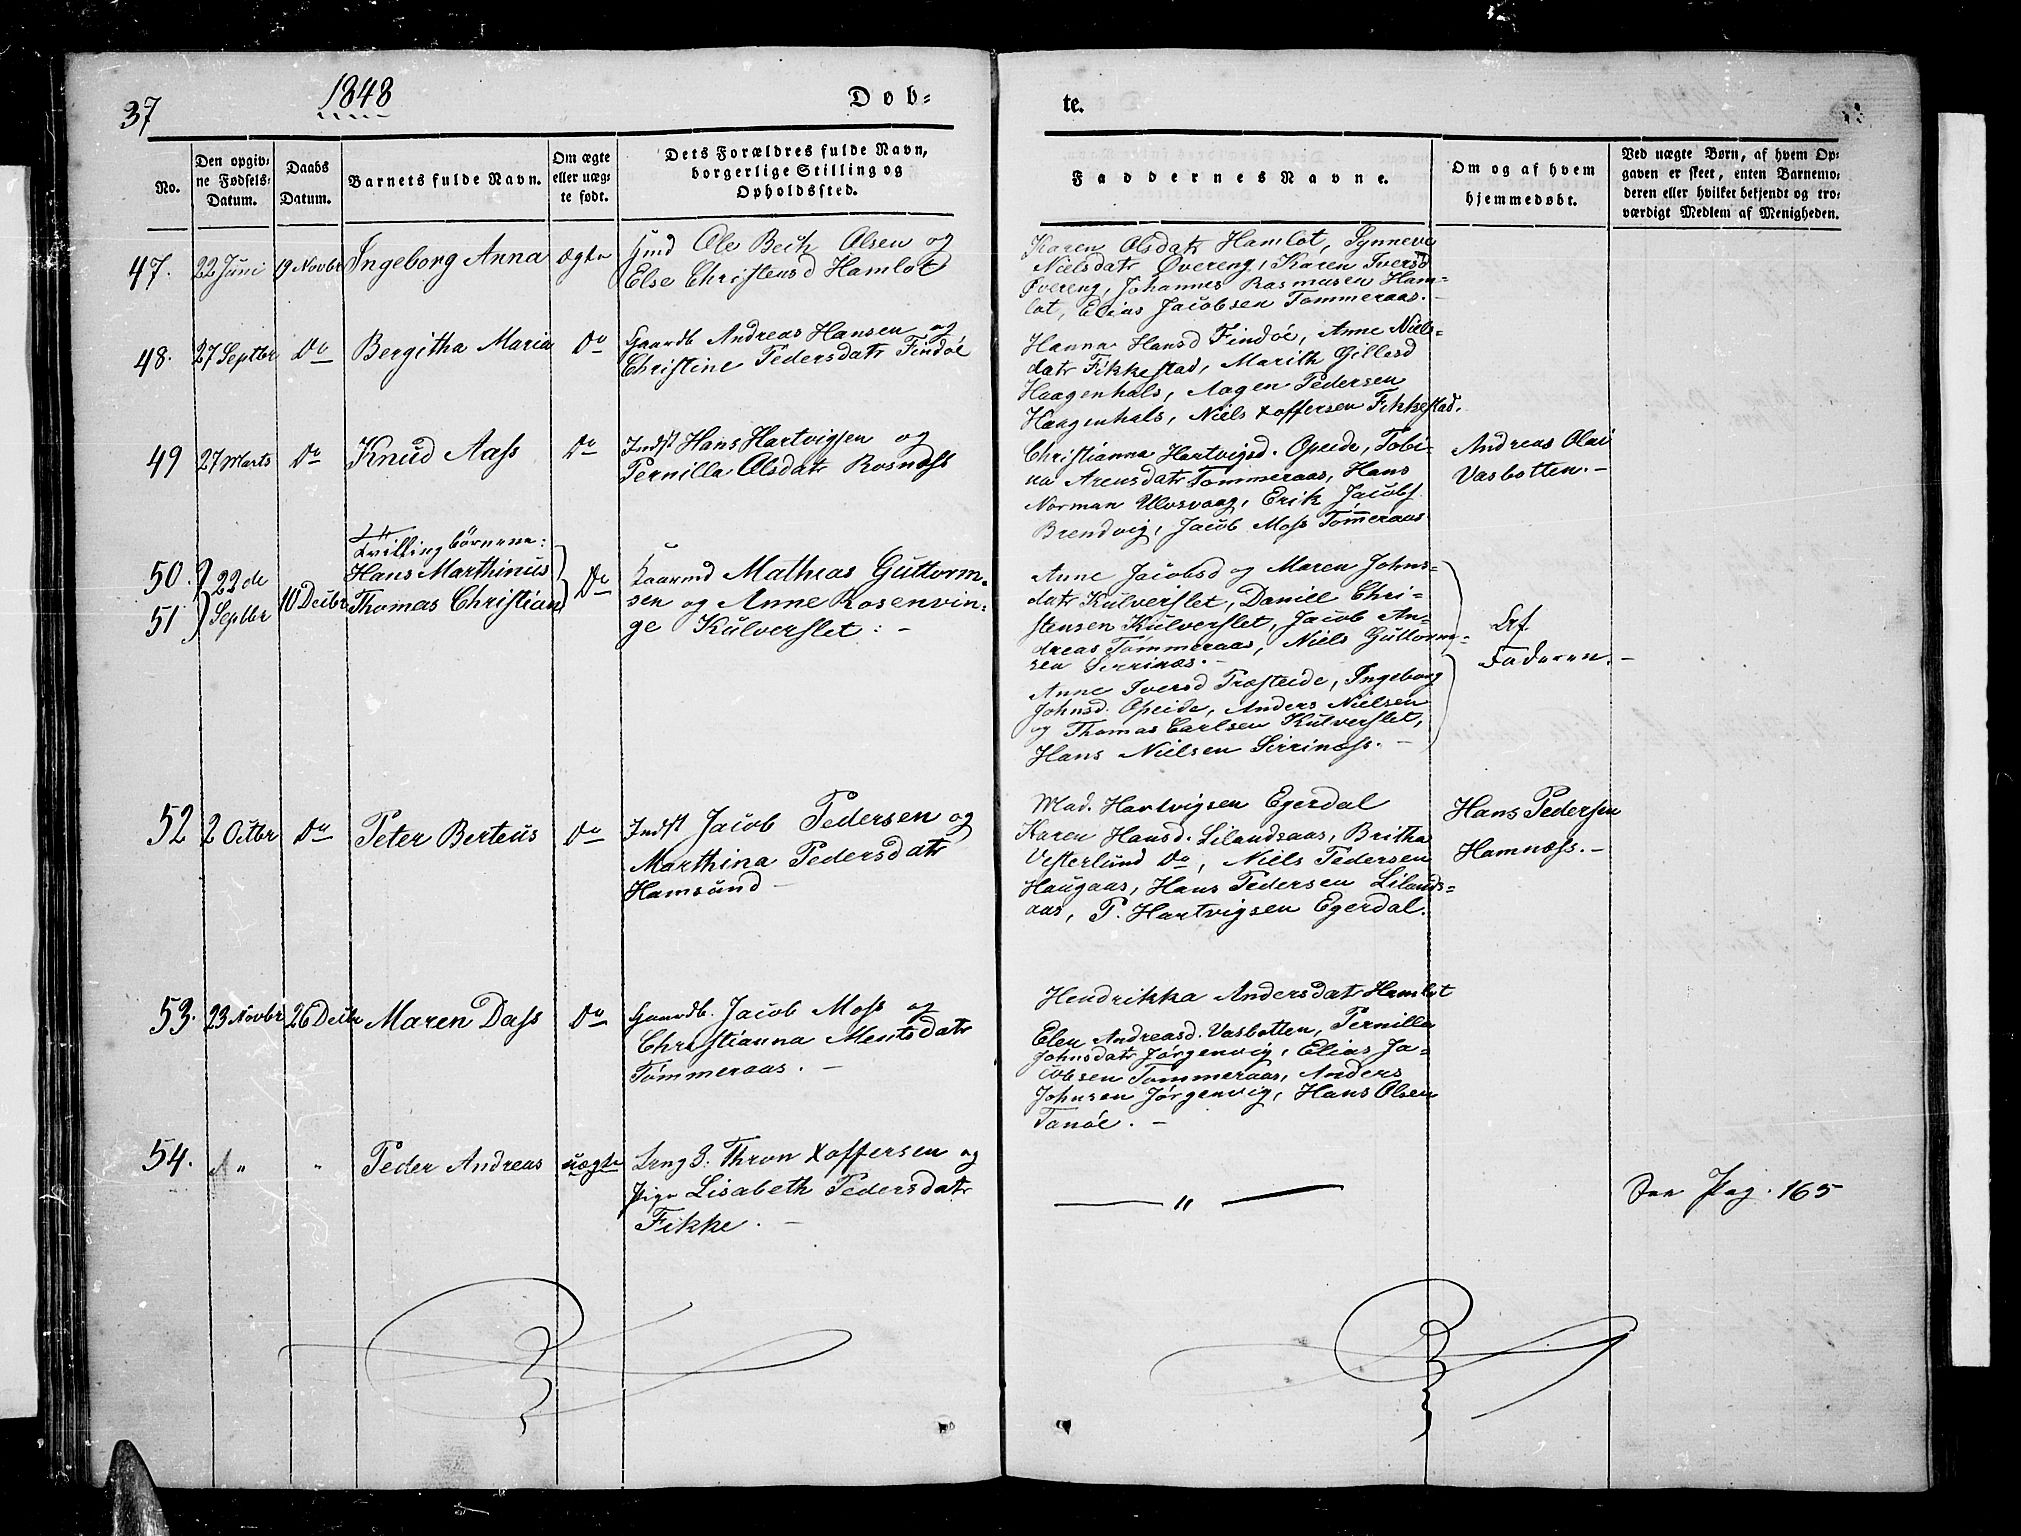 37
1848
Døb-
te.
No.
Den opgiv-
ne Fødsels-
Datum.
Daabs
Datum.
Barnets fulde Navn.
Om ægte
eller uæg-
te født.
Dets Forældres fulde Navn,
borgerlige Stilling og
Opholdssted.
Faddernes Navne.
Om og af hvem
hjemmedøbt.
Ved uægte Børn, af hvem Op-
gaven er skeet, enten Barnemo-
deren eller hvilket bekjendt og tro-
værdigt Medlem af Menigheden.
47.
22 Juni
19 Novbr
Ingeborg Anna
ægte
Ole Bech Olsen og
Else Christensd Hamlot
Karen Olsdatr Hamlot, Synneve
Nielsdatr Øvereng, Karen Iversd
Øvereng, Johannes Rasmusen Ham-
lot, Elias Jacobsen Tømmeraas.-
48.
27 Septbr
Do
Bergitha Maria
Do
Gaardb Andreas Hansen og
Christine Pedersdatr Findöe
Hanna Hansd Findöe, Anne Niels-
datr Fikkestad, Marith Gillesd
Haagenhals, Aagen Pedersen
Haagenhals, Niels Xoffersen Fikkestad.
49
27 Marts
Do
Knud Aass
Do
Indst Hans Hartvigsen og
Pernilla Olsdatr Rosnæss
Christianna Hartvigsd. Opeide, Tobi-
na Arensdatr Tømmeraas, Hans
Norman Ulvsvaag, Erik Jacobs.
Brendvig, Jacob Moss Tömmeraas
Andreas Olai
Vasbotten.-
50.
51
22de
Septbr
10 Decbr
Tvillingbørnene:
Hans Marthinus
Thomas Christian
Do
Mathias Guttorm-
sen og Anne Rosenvin-
ge Kulverslet: -
Anne Jacobsd og Maren Johns-
datr Kulverslet, Daniel Chri-
stensen Kulverslet, Jacob An-
dreas Tømmeraas, Niels Guttorm-
sen Serrinæs.-
Anne Iversd Præsteide, Ingeborg
Johnsd. Opeide, Anders Nielsen
og Thomas Carlsen Kulverslet,
Hans Nielsen Serrinæss. -
Faderen.-
52
2 Octbr
Do
Peter Berteus
Do
Indst Jacob Pedersen og
Marthina Pedersdatr
Hamsund -
Mad. Hartvigsen Egerdal
Karen Hansd. Lilandsaas, Britha
Vesterlund Do, Niels Pedersen
Haugaas, Hans Pedersen Lilands-
aas, P. Hartvigsen Egerdal.
Hans Pedersen
Hamnæss.-
53.
23 Novbr
26 Decbr
Maren Dass
Do
Gaardb. Jacob Moss og
Christianna Mentsdatr
Tømmeraas. -
Hendrikka Andersdatr Hamlot
Elen Andreasd. Vasbotten, Pernilla
Johnsdatr Jørgenvig, Elias Ja-
cobsen Tømmeraas, Anders
Johnsen Jørgenvig, Hans Olsen
Tanöe. -
54.
"
"
Peder Andreas
uægte
Ung S: Thron Xoffersen og
Pige Lisabeth Pedersdatr
Fikke. -
"
Pag. 165